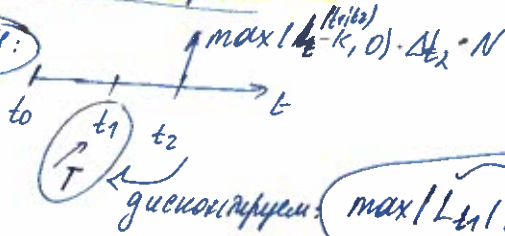 max(L_t^(t1,t2) - K, 0) · Δt₂ · N
t
t₀ t₁ t₂
T
дисконтируем: max(L_t₁(